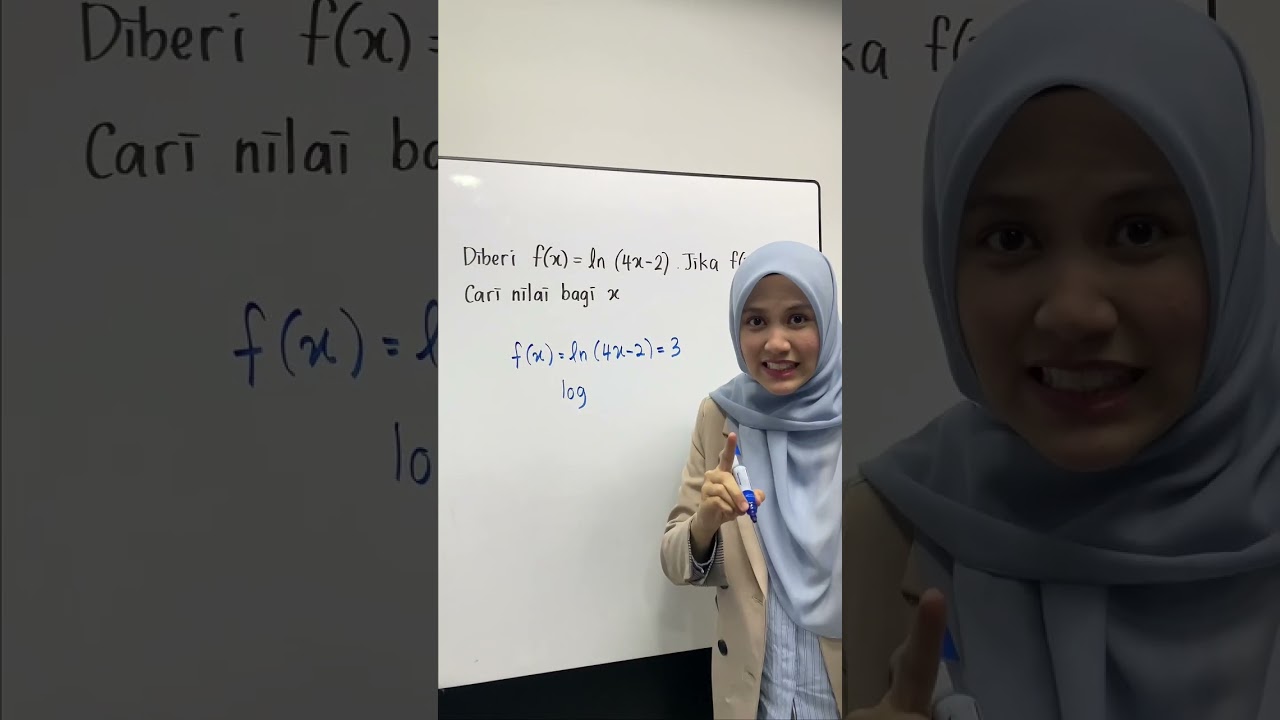 Diberi f(x) = ln (4x-2). Jika f(
Cari nilai bagi x
f(x) = ln (4x-2) = 3
log